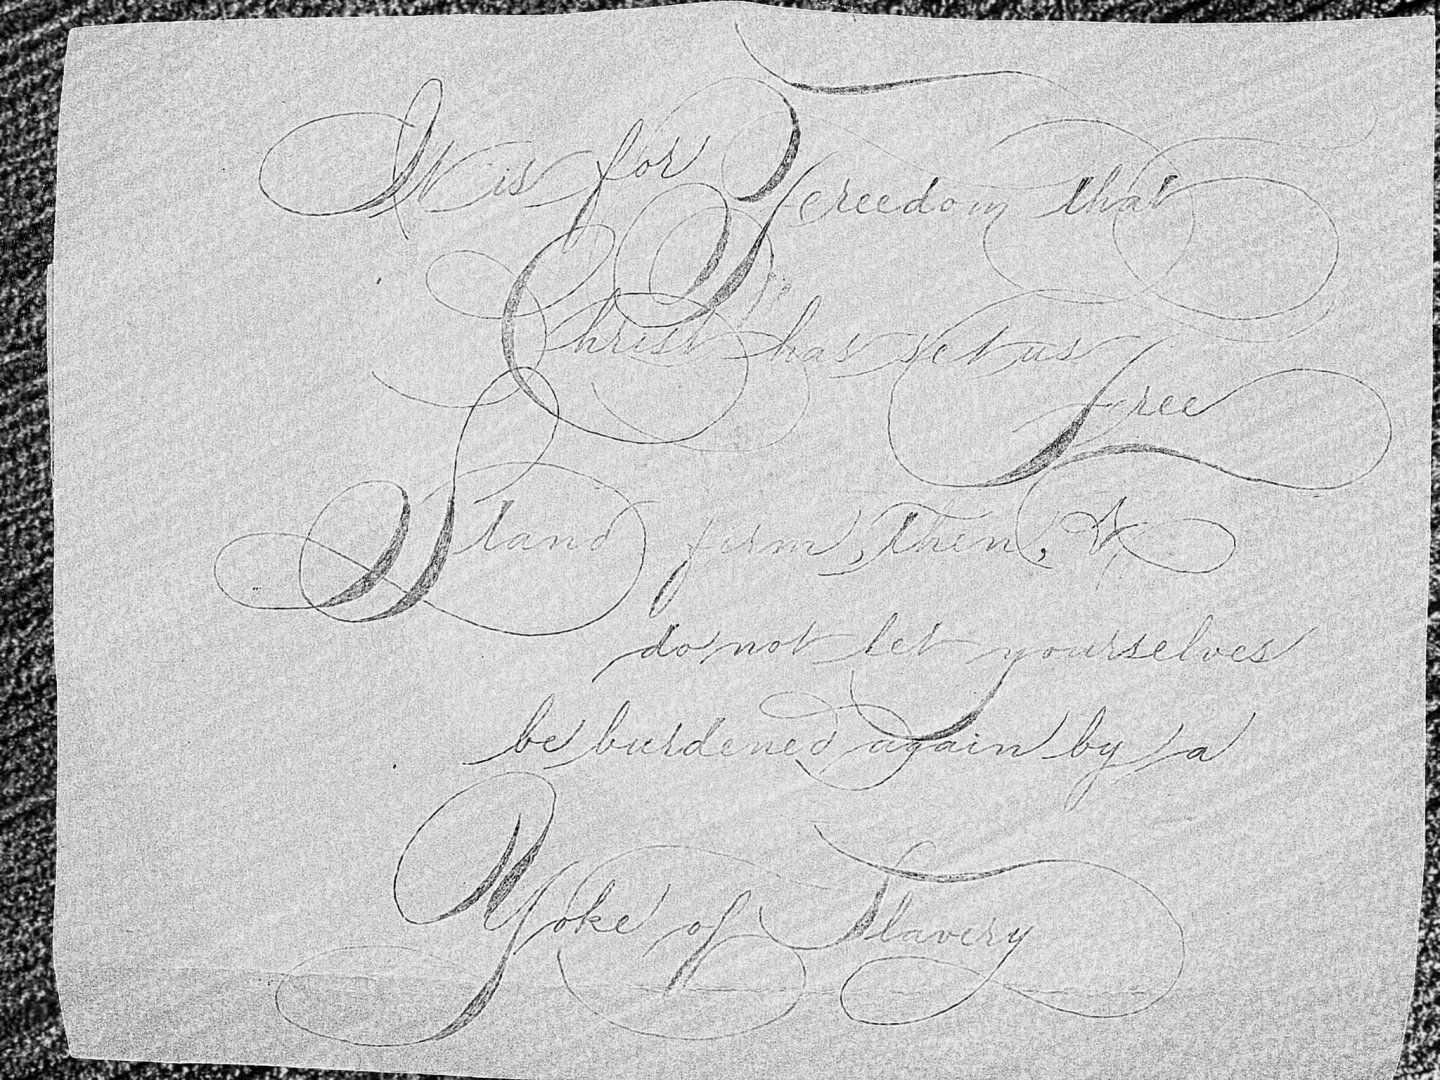 It is for Freedom that
Christ has set us
Free
Stand firm, then, &
do not let yourselves
be burdened again by a
Yoke of Slavery